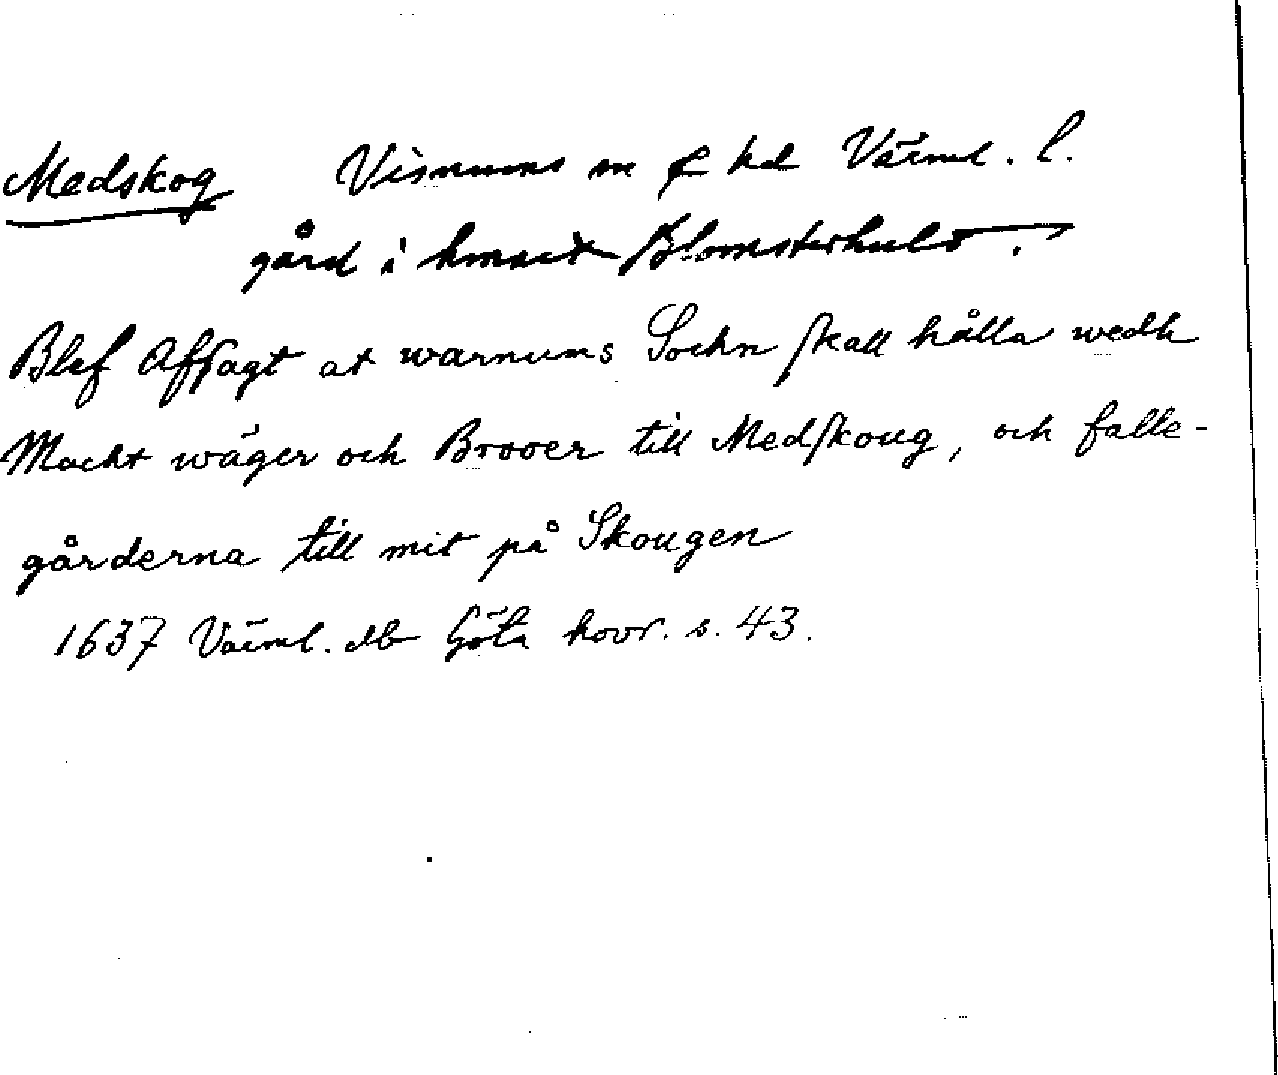 Medskog Visnums sn o hd Värml. l.
gård i hmnet Blomsterhult.
Blef Afsagt at warnums Sochn skall hålla wedh
Macht wäger och Brooer till Medskoug, och falle-
gårderna till mit på Skougen
1637 Värml. db Göta hovr. s. 43.